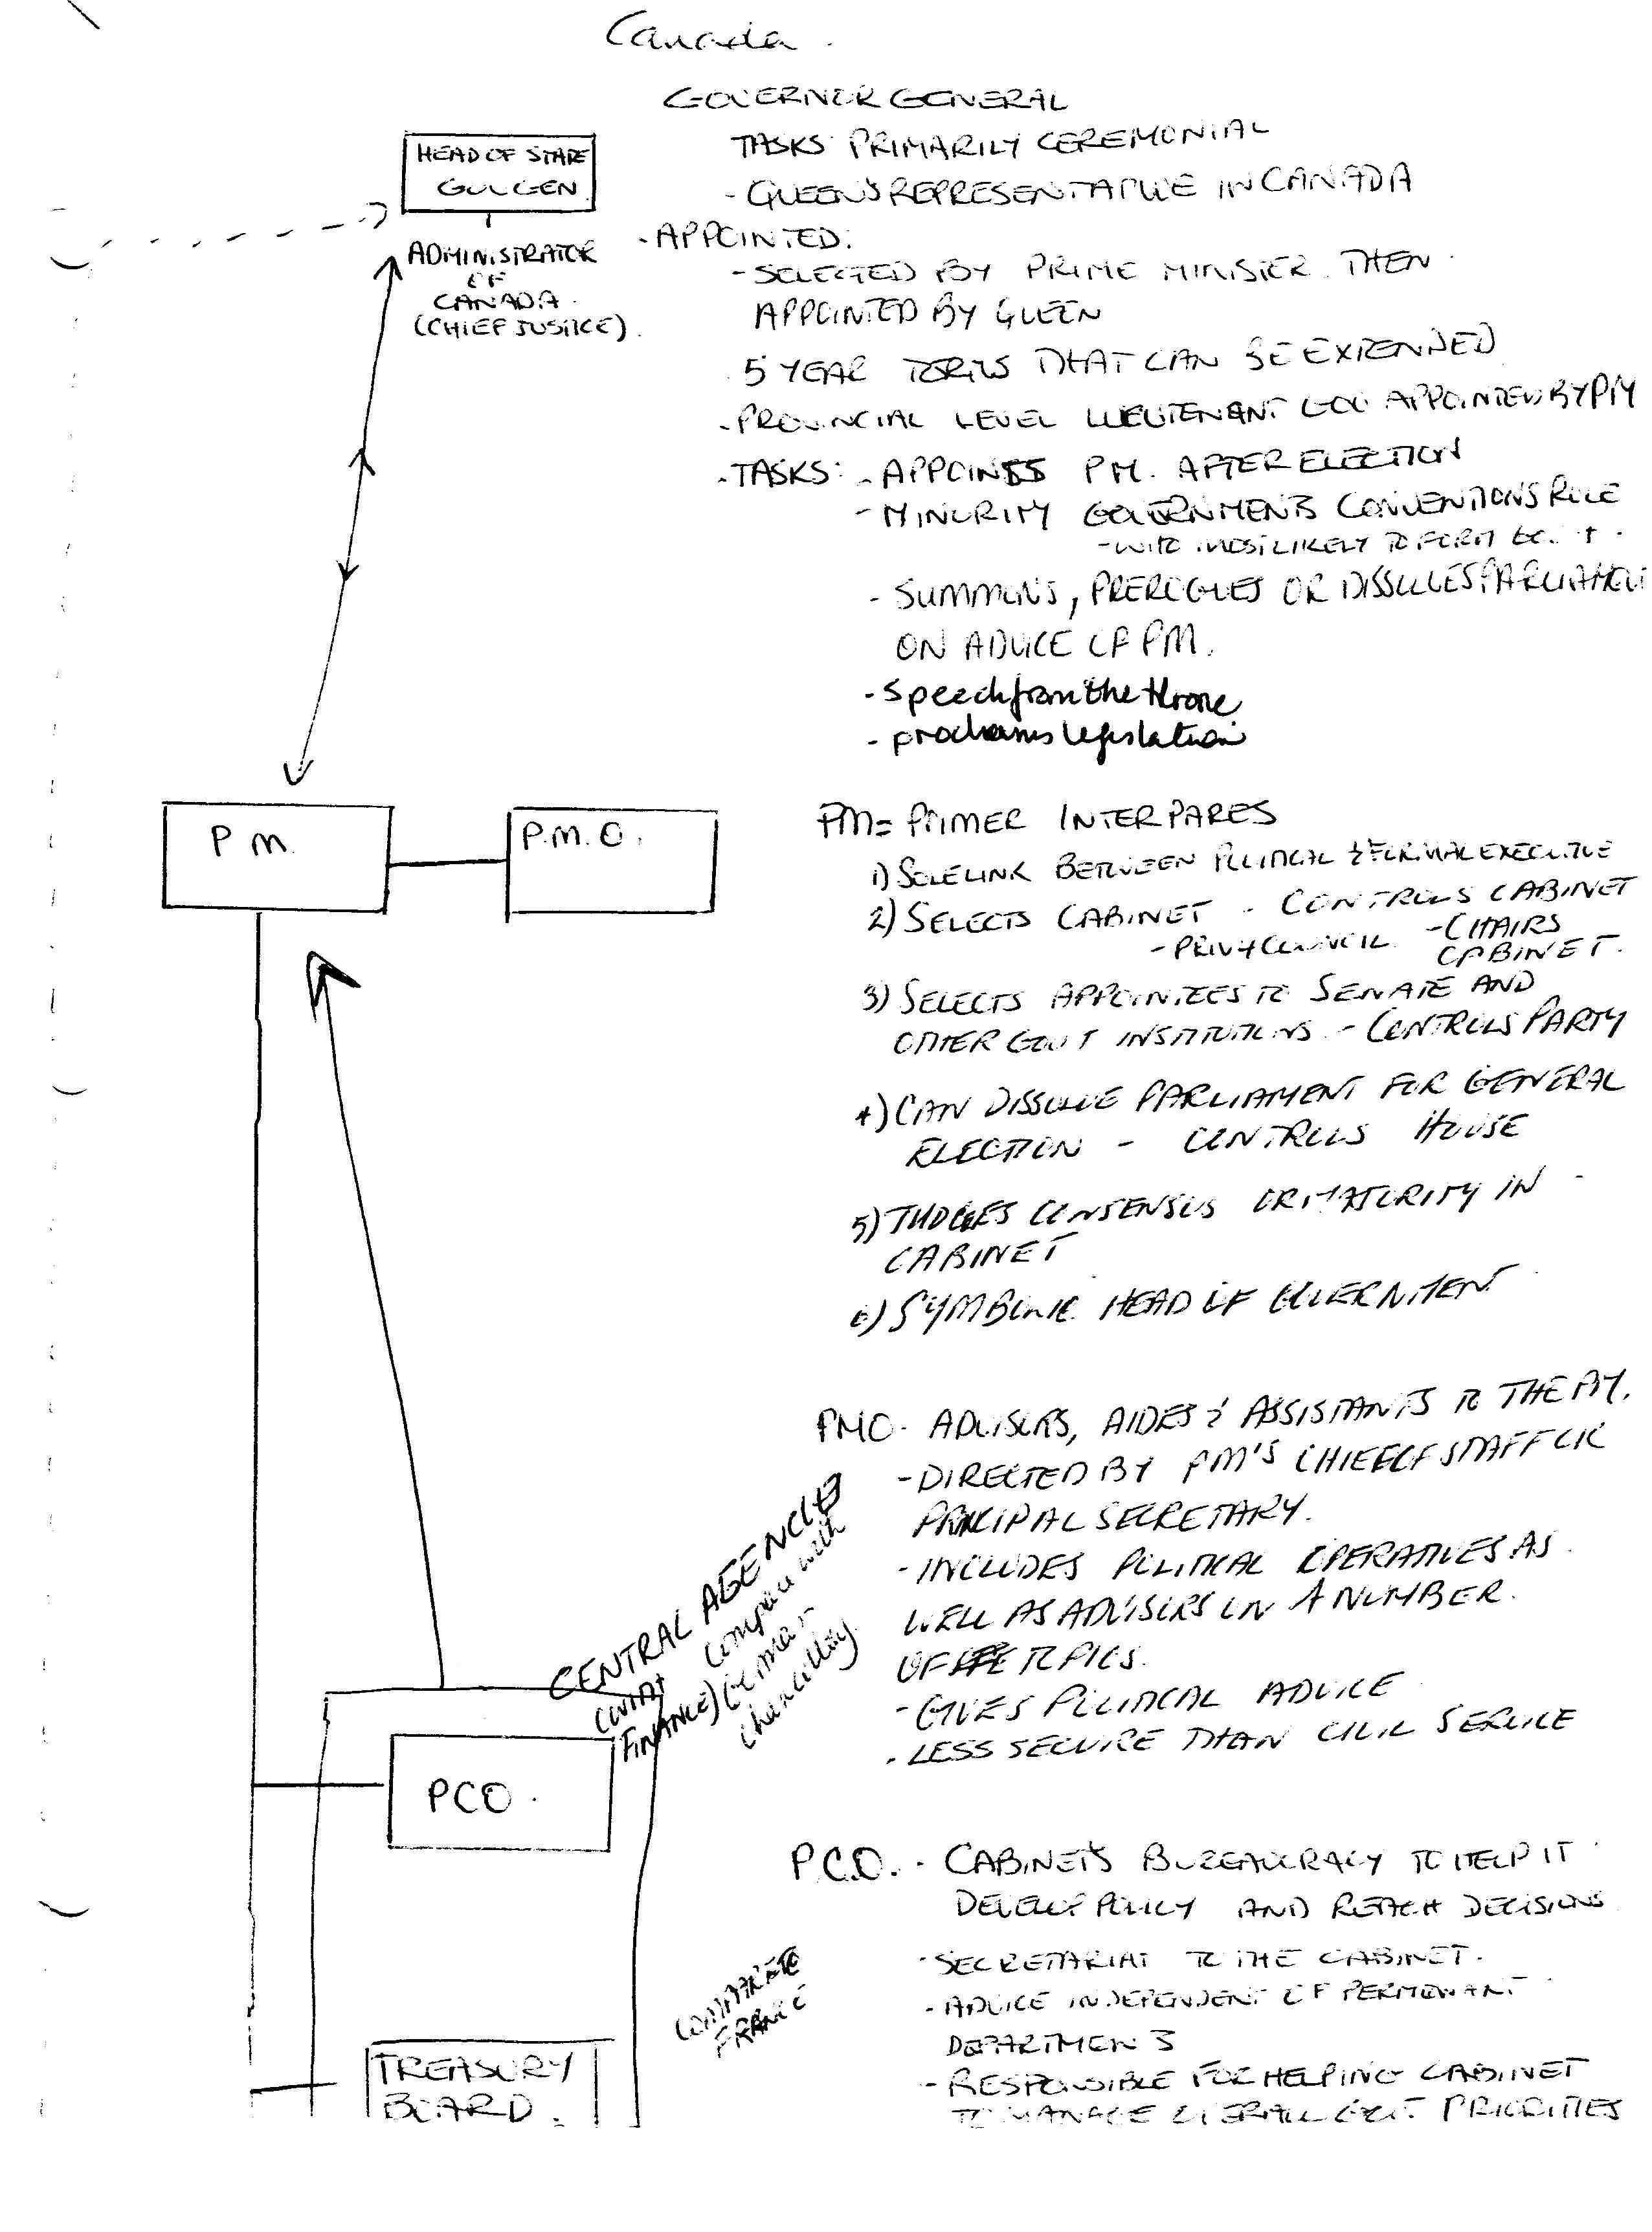 Canada.
GOVERNOR GENERAL
HEAD OF STATE
GOV GEN
TASKS PRIMARILY CEREMONIAL
- QUEEN'S REPRESENTATIVE IN CANADA
ADMINISTRATOR
OF
CANADA.
(CHIEF JUSTICE).
- APPOINTED:
- SELECTED BY PRIME MINISTER THEN
APPOINTED BY QUEEN
5 YEAR TERMS THAT CAN BE EXTENDED
- PROVINCIAL LEVEL LIEUTENANT GOV APPOINTED BY PM
- TASKS: - APPOINTS PM. AFTER ELECTION
- MINORITY GOVERNMENTS CONVENTIONS RULE
- WHO MOST LIKELY TO FORM GOV'T.
- SUMMONS, PREROGUES OR DISSOLVES PARLIAMENT
ON ADVICE OF PM.
- Speech from the throne
- proclaims legislation
P M.
P.M.O.
PM = PRIMER INTERPARES
1) SOLE LINK BETWEEN POLITICAL & FORMAL EXECUTIVE
2) SELECTS CABINET - CONTROLS CABINET
- PRIVY COUNCIL - CHAIRS
CABINET.
3) SELECTS APPOINTEES TO SENATE AND
OTHER GOV'T INSTITUTIONS - CONTROLS PARTY
4) CAN DISSOLVE PARLIAMENT FOR GENERAL
ELECTION - CONTROLS HOUSE
5) JUDGES CONSENSUS OR MAJORITY IN
CABINET
6) SYMBOLIC HEAD OF GOVERNMENT
PMO - ADVISORS, AIDES & ASSISTANTS TO THE PM.
- DIRECTED BY PM'S CHIEF OF STAFF OR
PRINCIPAL SECRETARY.
- INCLUDES POLITICAL OPERATIVES AS
WELL AS ADVISORS ON A NUMBER
OF TOPICS.
- GIVES POLITICAL ADVICE
- LESS SECURE THAN CIVIL SERVICE
CENTRAL AGENCIES
(WITH
FINANCE)
Compare with
German
chancellory
PCO.
P.C.O. - CABINET'S BUREAUCRACY TO HELP IT
DEVELOP POLICY AND REACH DECISIONS
- SECRETARIAT TO THE CABINET.
- ADVICE INDEPENDENT OF PERMENANT
DEPARTMENTS
- RESPONSIBLE FOR HELPING CABINET
TO MANAGE OVERALL GOV'T PRIORITIES
COMPARE TO
FRANCE
TREASURY
BOARD.